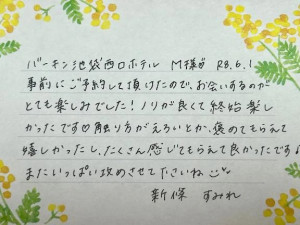 バーキン池袋西口ホテル M様♡ R8.6.1.
事前にご予約して頂けたので、お会いするのが
とても楽しみでした!ノリが良くて終始楽し
かったです♡触り方がえろいとか、褒めてもらえて
嬉しかったし、たくさん感じてもらえて良かったです♡
またいっぱい攻めさせて下さいね
新條 すみれ